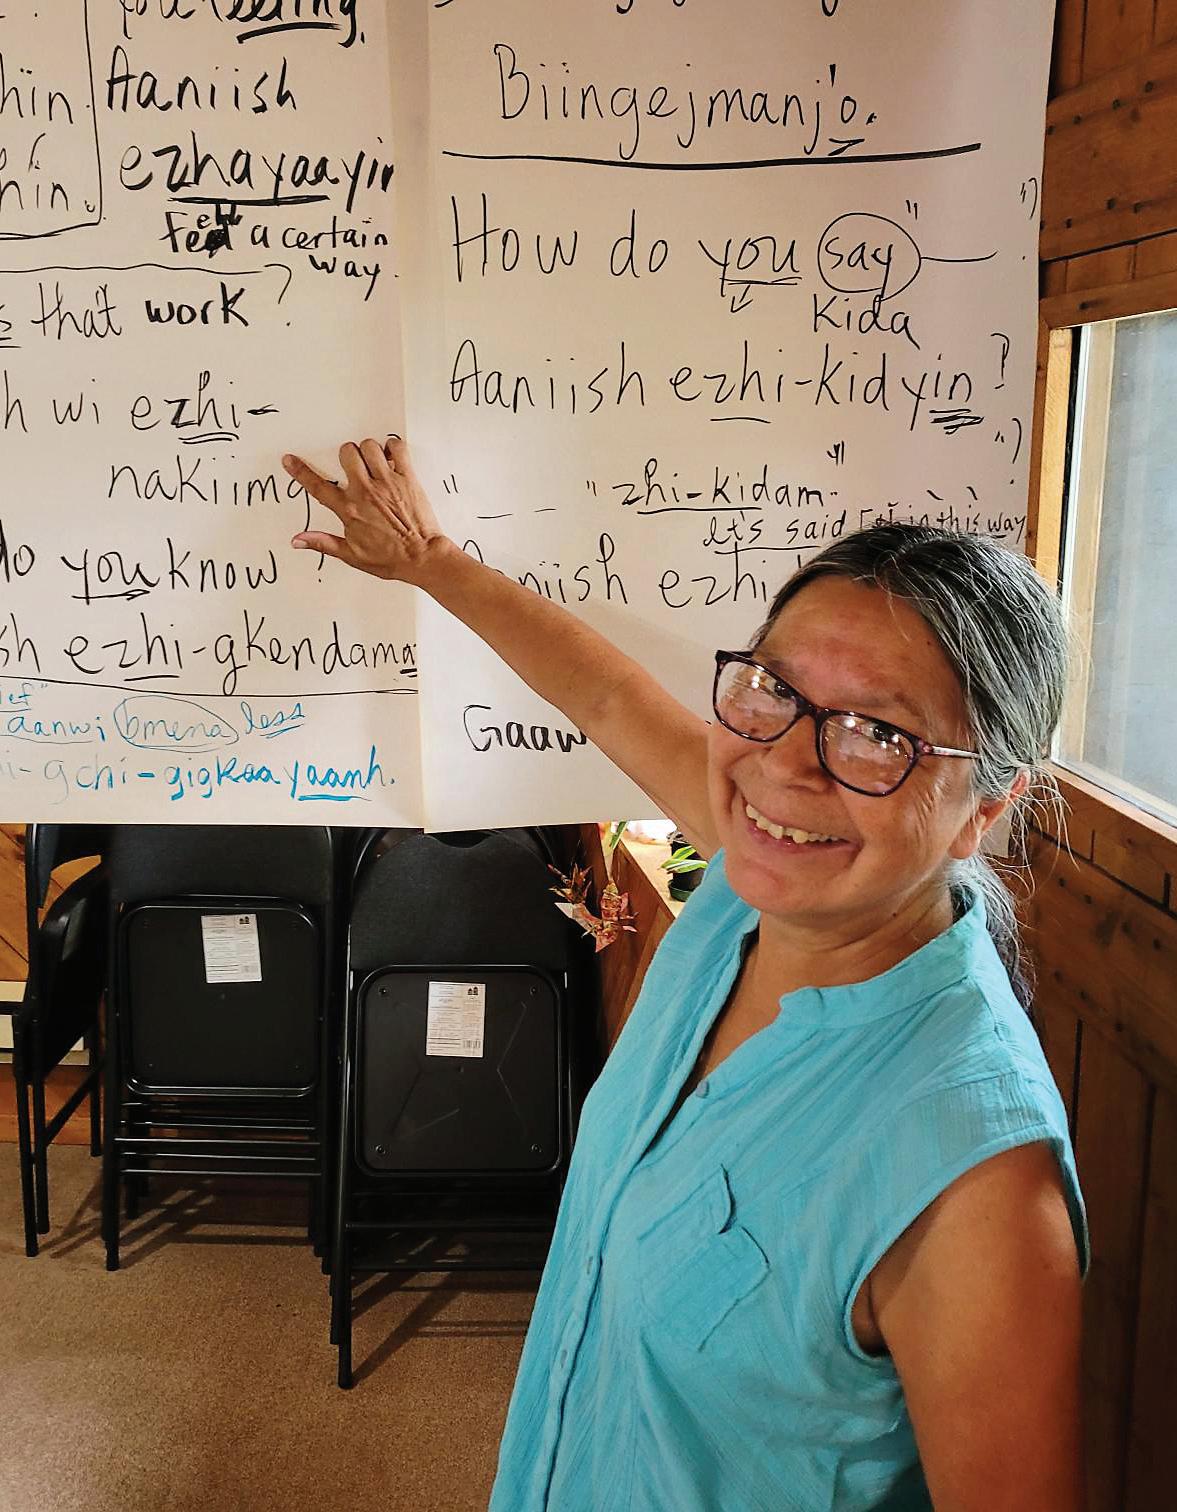 you feeling.
hin. Aaniish
hin. ezhayaayin
Feel a certain
way.
that work?
h wi ezhi-
nakiimg
do you know?
sh ezhi-gkendama
ief"
aanwi bmena less
i-gchi-gigkaayaanh.
Biingejmanj'o.
How do you say "
") .
Kida
Aaniish ezhi-kidyin?
" __ __ " zhi-kidam."
It's said in this way
niish ezhi
Gaaw